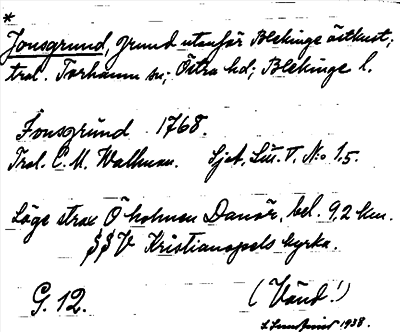 *
Jonsgrund, grund utanför Blekinge östkust;
trol. Torhamn sn; Östra hd; Blekinge l.
Jonsgrund 1768.
Trol. C. M. Wallman. Sjöt. Litt. T. No 15.
Läge strax Ö holmen Danör, bel. 9,2 km.
SSV Kristianopels kyrka.
G. 12.
(Vänd!)
1938.